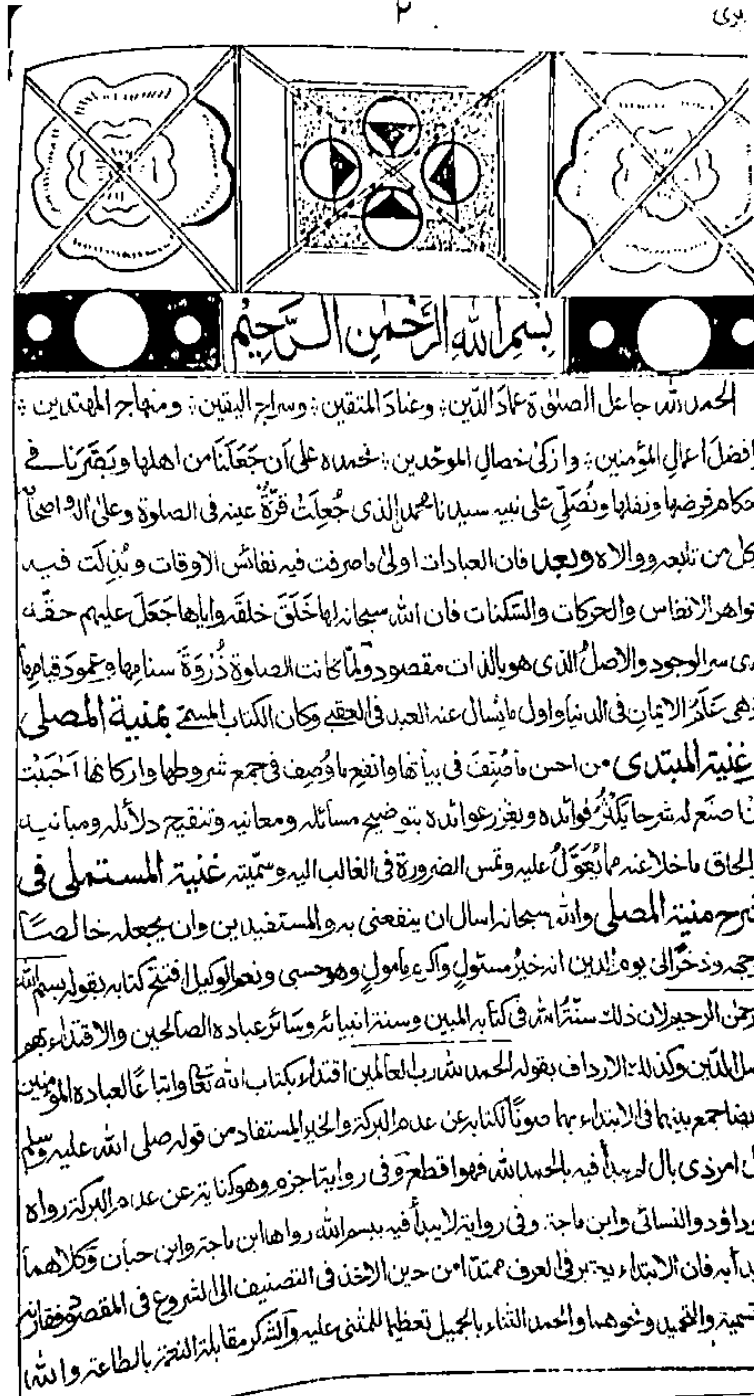 ٢
بسم الله الرحمن الرحيم
الحمد لله جاعل الصلوة عماد الدين ؛ وعتاد المتقين ؛ وسراج اليقين ؛ ومنهاج المهتدين ؛
افضل اعمال المؤمنين ؛ وازكى خصال الموحدين ؛ نحمده على ان جعلنا من اهلها وبصرنا فى
حكام فرضها ونفلها ونصلى على نبيه سيدنا محمد الذى جعلت قرة عينه فى الصلوة وعلى اله واصحا
كل من تابعه ووالاه وبعد فان العبادات اولى ما صرفت فيه نفائس الاوقات وبذلت فيه
واهر الانفاس والحركات والسكنات فان الله سبحانه لها خلق خلقه واياها جعل عليهم حقه
ى سر الوجود والاصل الذى هو بالذات مقصود ولما كانت الصلوة ذروة سنامها وعمود قيامها
وهى علم الايمان فى الدنيا واول ما يسال عنه العبد فى العقبى وكان الكتاب المسمى بمنية المصلى
غنية المبتدى من احسن ما صنف فى بيانها وانفع ما وصف فى جمع شروطها واركانها احببت
ن اصنع له شرحا يكثر فوائده ويغزر عوائده بتوضيح مسائله ومعانيه وتنقيح دلائله ومبانيه
الحاق ما خلا عنه مما يعول عليه وتمس الضرورة فى الغالب اليه وسميته غنية المستملى فى
شرح منية المصلى والله سبحانه اسال ان ينفعنى به والمستفيدين وان يجعله خالصا
وجهه وذخرا الى يوم الدين انه خير مسئول واكرم مامول وهو حسبى ونعم الوكيل افتتح كتابه بقوله بسم الله
رحمن الرحيم لان ذلك سنة الله فى كتابه المبين وسنة انبيائه وسائر عباده الصالحين والاقتداء بهم
صل الدين وكذلك الارداف بقوله الحمد لله رب العالمين اقتداء بكتاب الله تعا واتباعا لعباده المؤمنين
يضا جمع بينهما فى الابتداء بهما صونا لكتابه عن عدم البركة والخير المستفاد من قوله صلى الله عليه وسلم
ل امر ذى بال لم يبدأ فيه بالحمد لله فهو اقطع وفى رواية اجزم وهو كناية عن عدم البركة رواه
وداود والنسائى وابن ماجة وفى رواية لا يبدأ فيه ببسم الله رواها ابن ماجة وابن حبان وكلاهما
بدأ به فان الابتداء يعتبر فى العرف ممتدا من حين الاخذ فى التصنيف الى الشروع فى المقصود فقارنه
تسمية والتحميد ونحوهما والحمد الثناء بالجميل تعظيما للمثنى عليه والشكر مقابلة النعم بالطاعة والله